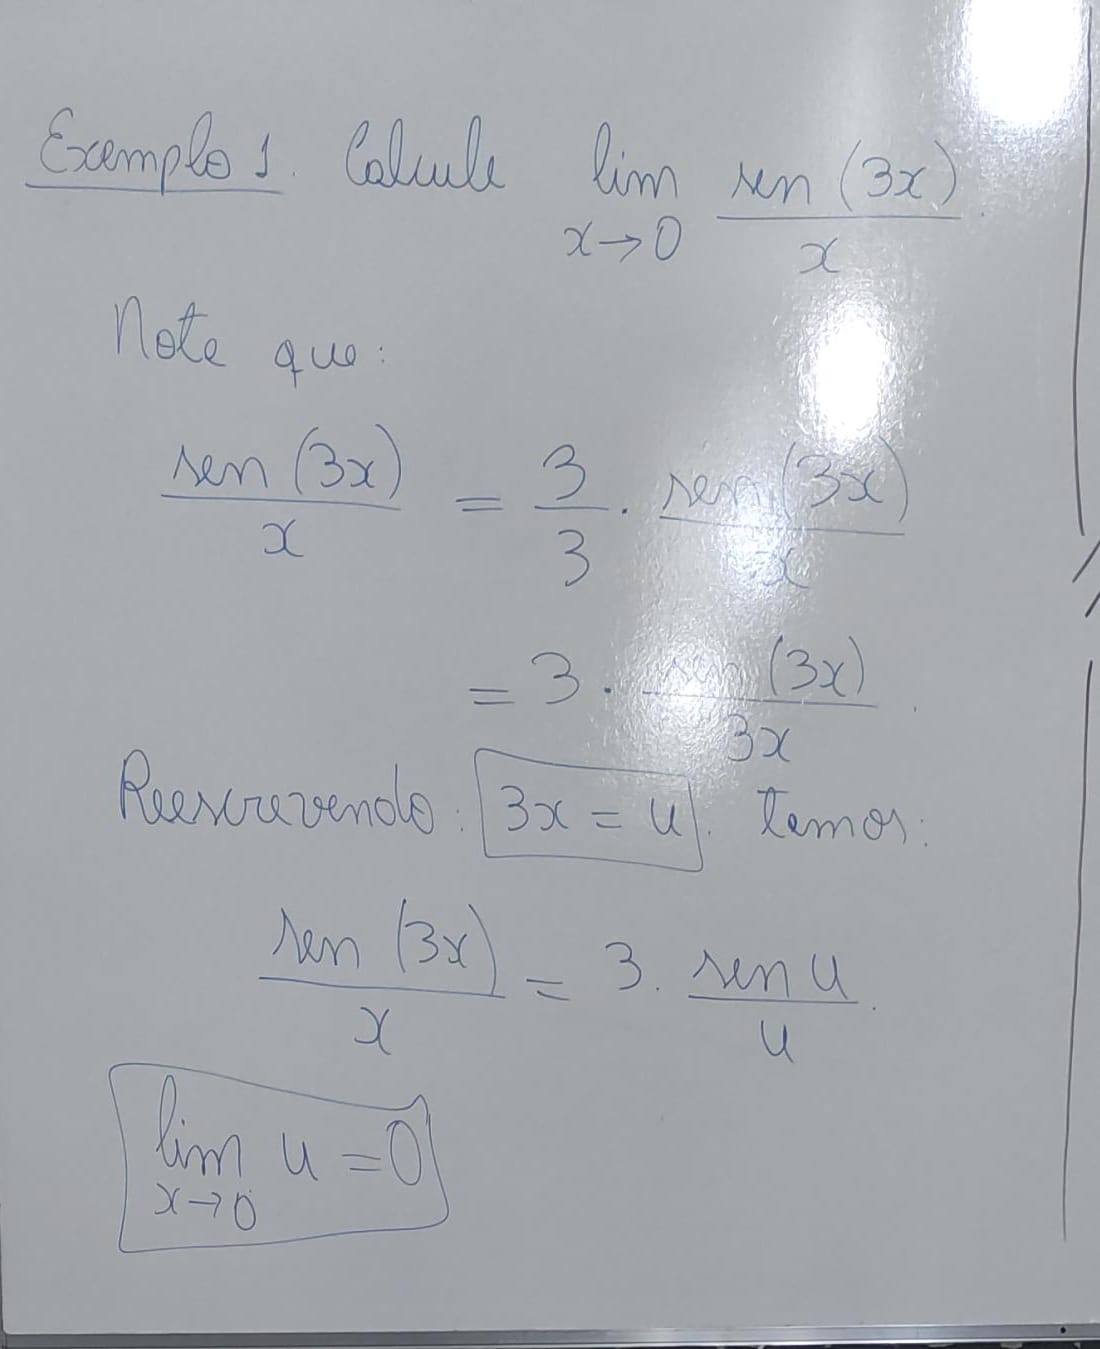 Exemplo 1. Calcule lim x→0 sen (3x) / x.
Note que:
sen (3x) / x = 3/3 · sen (3x) / x
= 3 · sen (3x) / 3x.
Reescrevendo: 3x = u. temos:
sen (3x) / x = 3. sen u / u.
lim x→0 u = 0